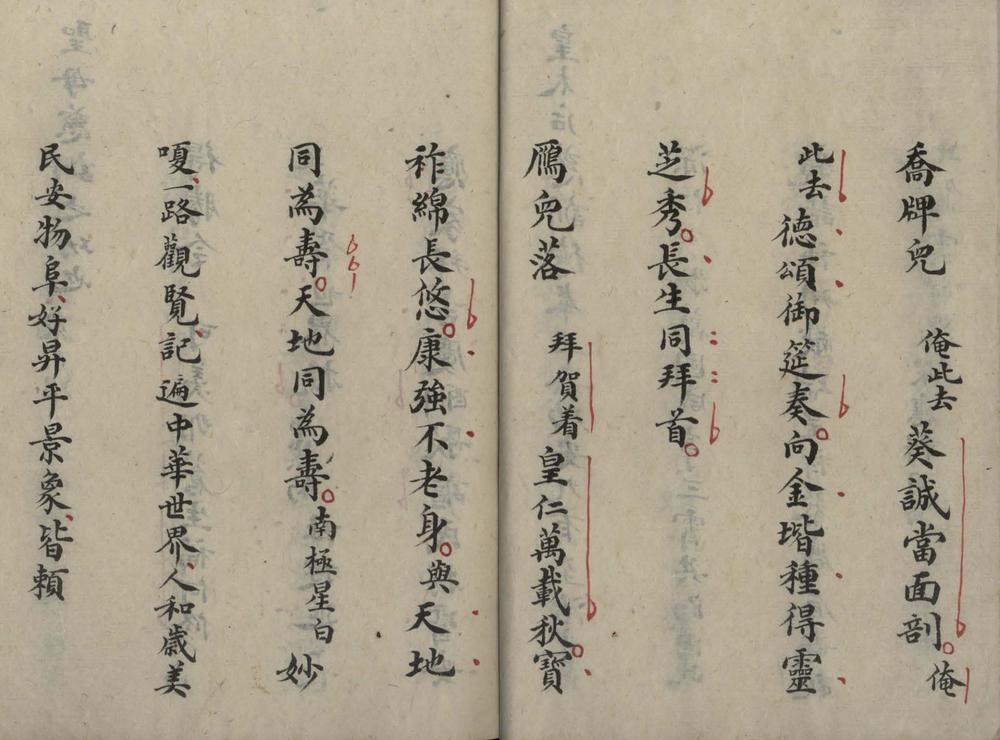 喬牌兒 俺此去葵誠當面剖。俺
此去德頌御筵奏。向金堦種得靈
芝秀。長生同拜首。
鴈兒落 拜賀着皇仁萬載秋。寳
祚綿長悠。康強不老身。與天地
同為壽。天地同為壽。南極星白妙
嗄、一路觀覽、記遍中華世界、人和歲美
民安物阜、好昇平景象、皆頼